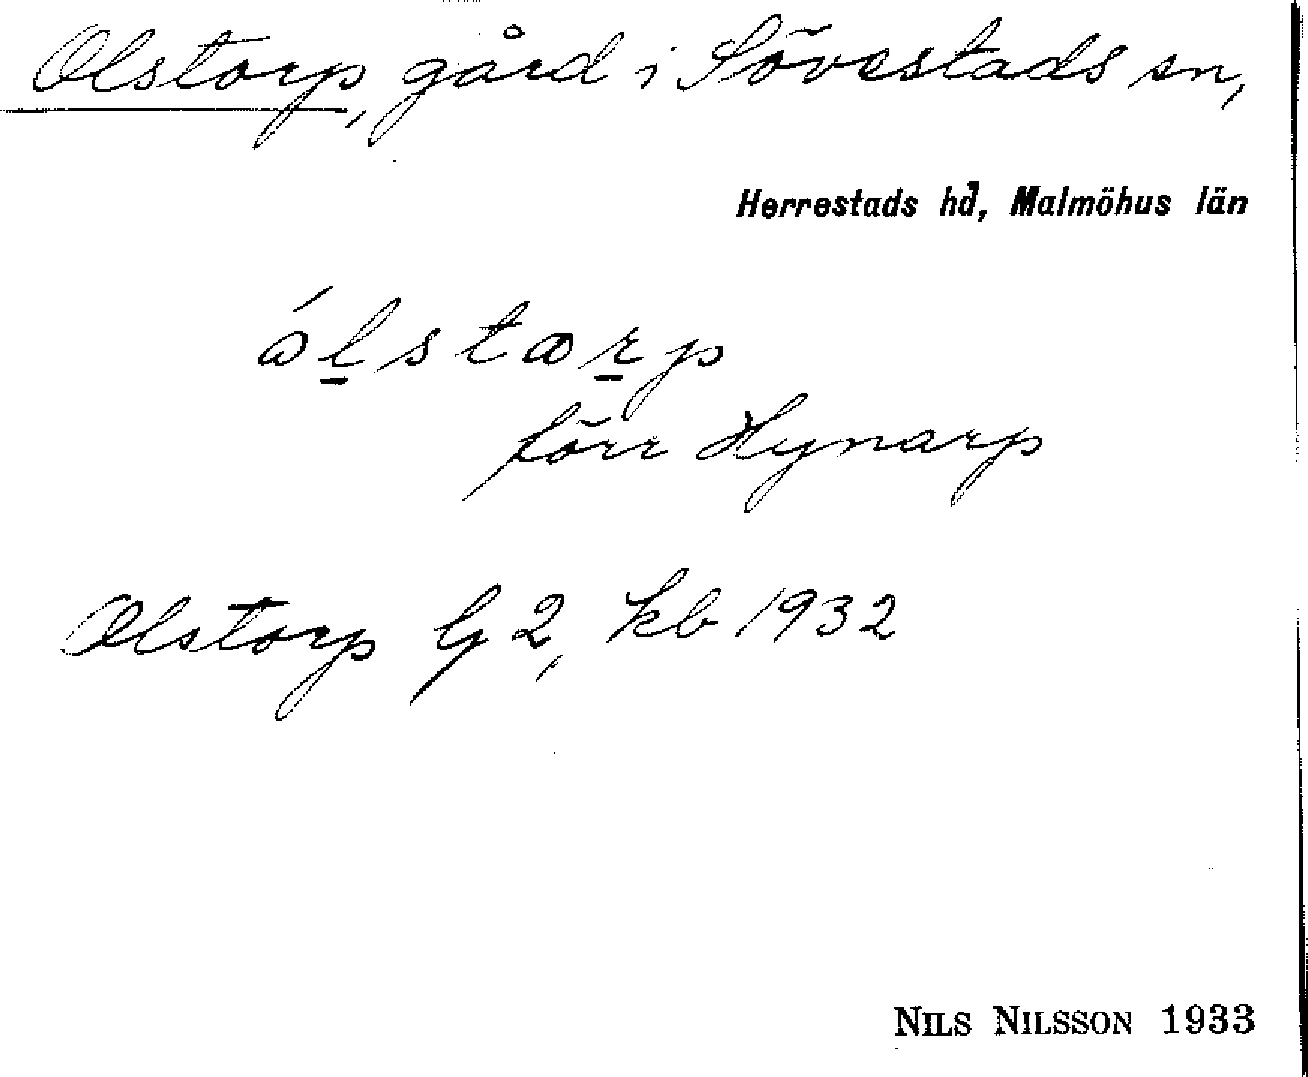 Olstorp, gård i Sövestads sn,
Herrestads hd, Malmöhus län
ólstorp
förr Hynarp
Olstorp G 2, kb 1932
NILS NILSSON 1933